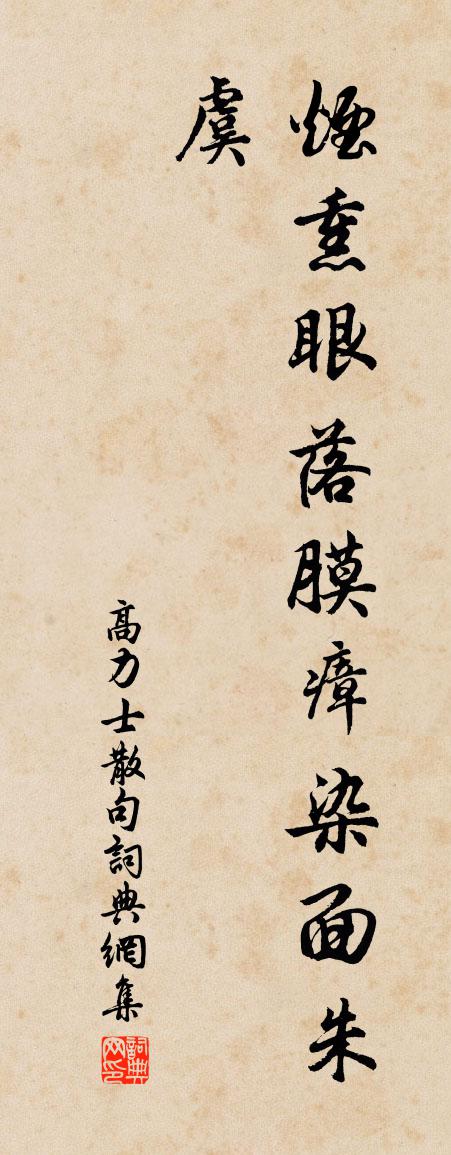 煙熏眼落膜瘴染面朱
虞
高力士散句詞典網集
詞典网印